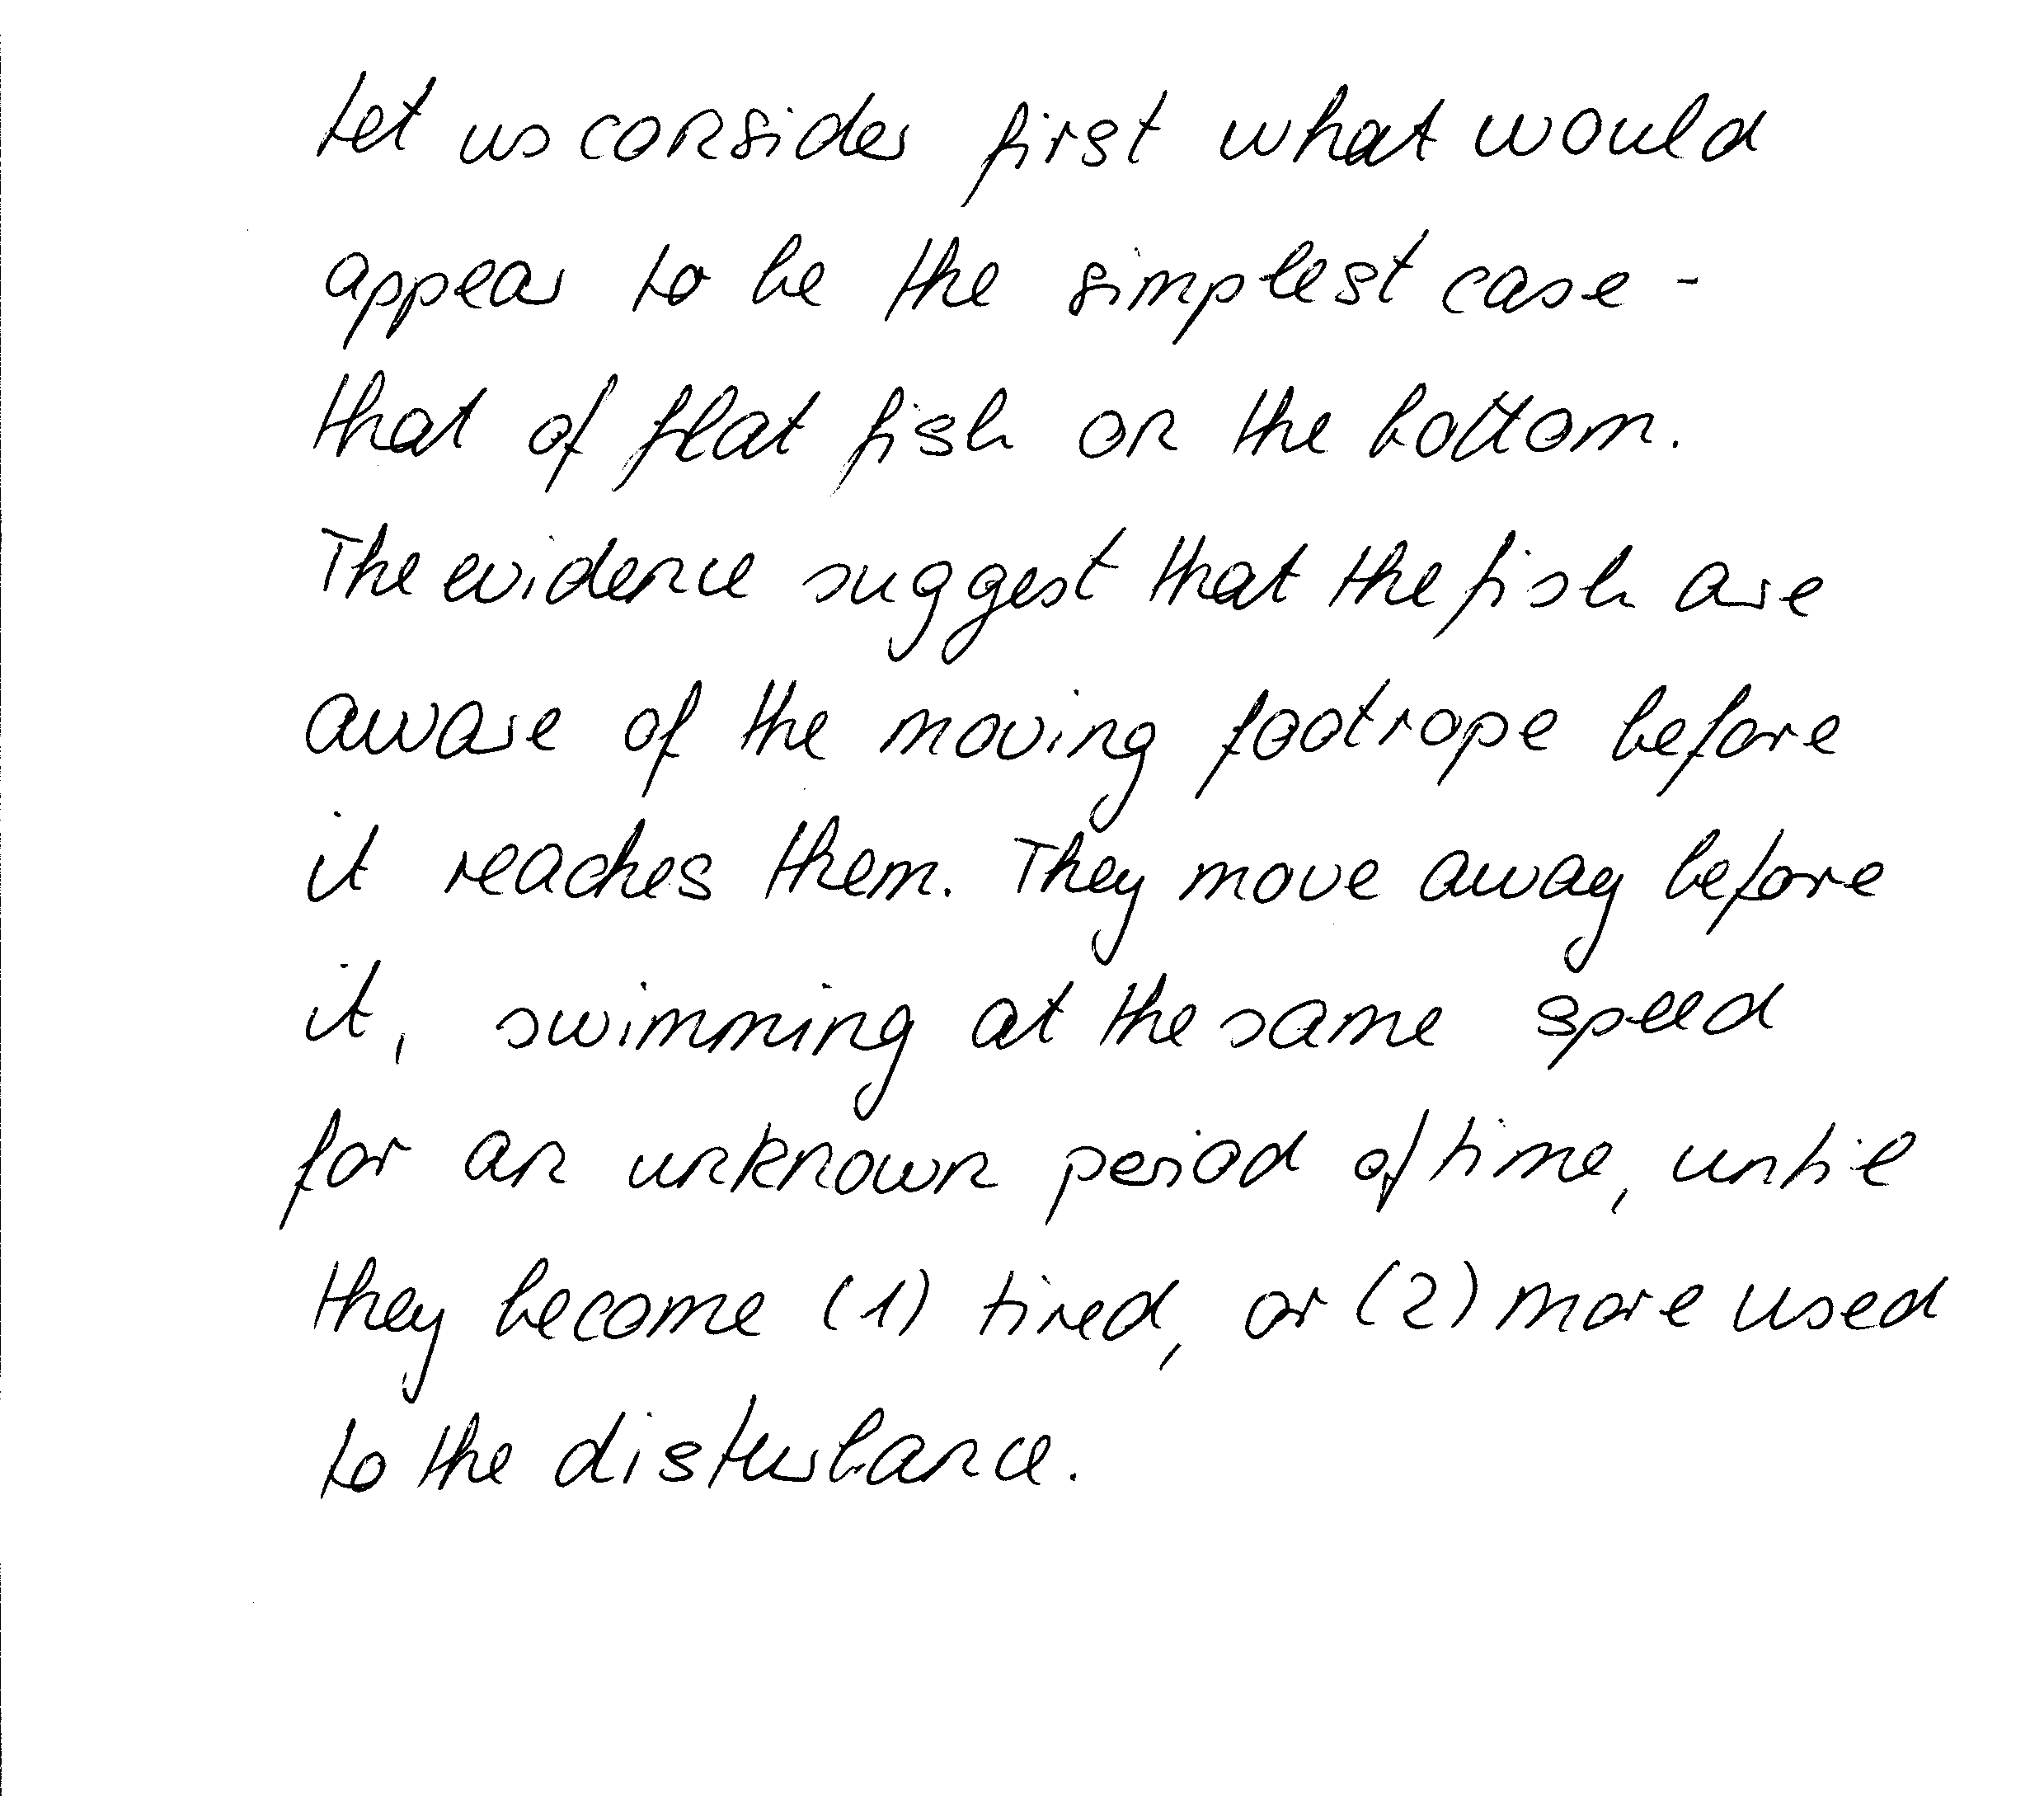 Let us consider first what would
appear to be the simplest case -
that of flat fish on the bottom.
The evidence suggest that the fish are
aware of the moving footrope before
it reaches them. They move away before
it, swimming at the same speed
for an unknown period of time, until
they become (1) tired, or (2) more used
to the disturbance.